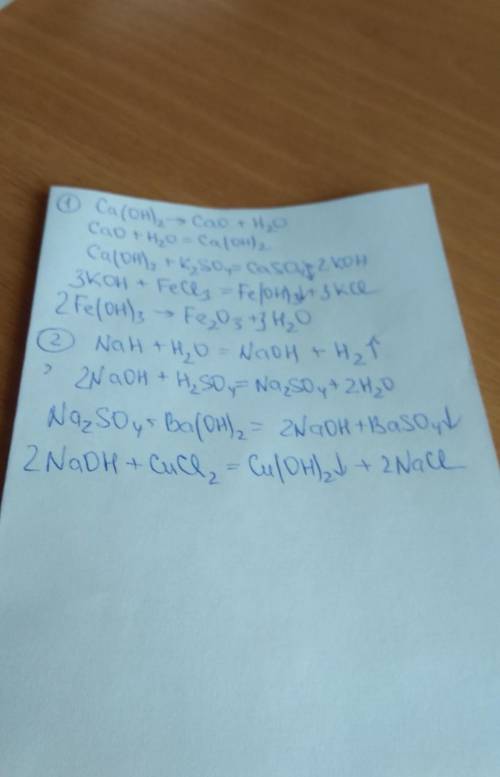 ① Ca(OH)₂ → CaO + H₂O
CaO + H₂O = Ca(OH)₂
Ca(OH)₂ + K₂SO₄ = CaSO₄↓ + 2KOH
3KOH + FeCl₃ = Fe(OH)₃↓ + 3KCl
2Fe(OH)₃ → Fe₂O₃ + 3H₂O
② NaH + H₂O = NaOH + H₂↑
2NaOH + H₂SO₄ = Na₂SO₄ + 2H₂O
Na₂SO₄ + Ba(OH)₂ = 2NaOH + BaSO₄↓
2NaOH + CuCl₂ = Cu(OH)₂↓ + 2NaCl